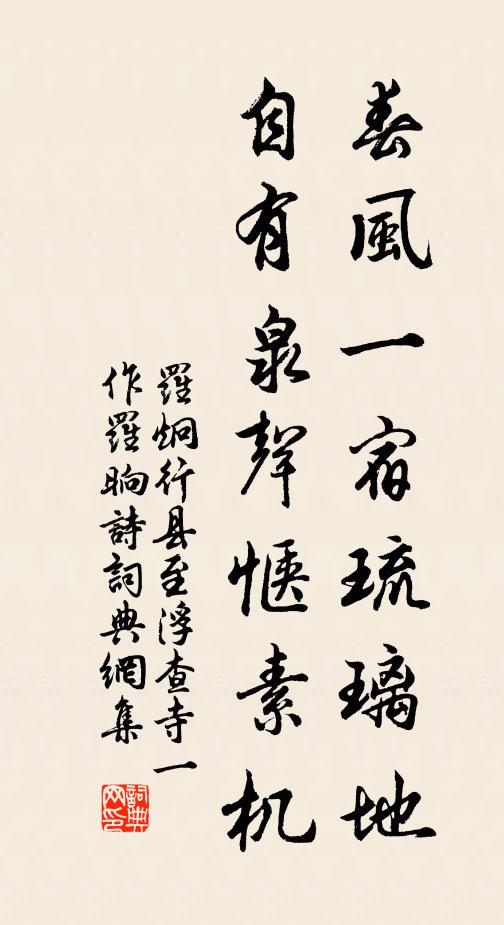 春風一宿琉璃地
自有泉聲愜素机
羅炯行县至浮查寺一
作羅晌詩詞典網集
詞典网印